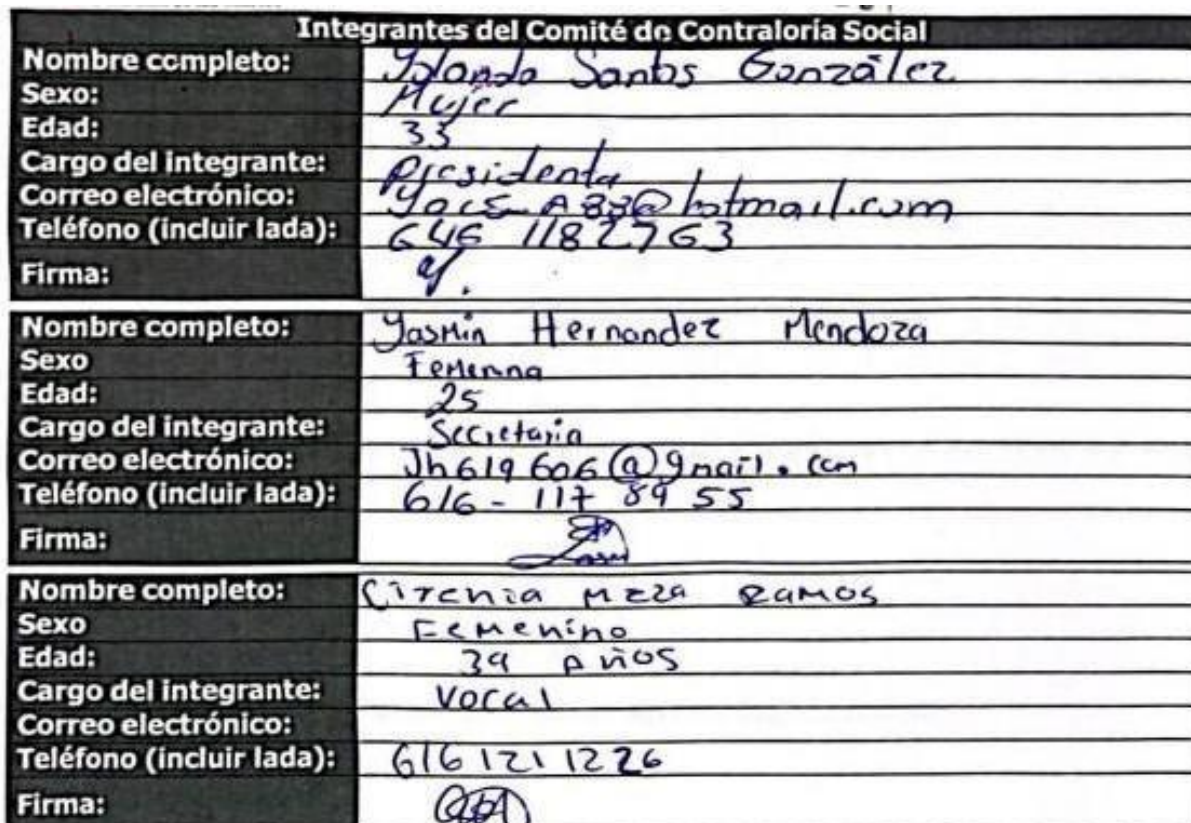 Integrantes del Comité de Contraloría Social
Nombre completo: Yolanda Santos González
Sexo: Mujer
Edad: 33
Cargo del integrante: presidenta
Correo electrónico: @hotmail.com
Teléfono (incluir lada): 646 1182763
Firma:
Nombre completo: Yasmin Hernandez Mendoza
Sexo Femenina
Edad: 25
Cargo del integrante: Secretaria
Correo electrónico: Jh619606@gmail.com
Teléfono (incluir lada): 616-117 89 55
Firma:
Nombre completo: Cirenia Meza Ramos
Sexo Femenino
Edad: años
Cargo del integrante: Vocal
Correo electrónico:
Teléfono (incluir lada): 616 121 1226
Firma: